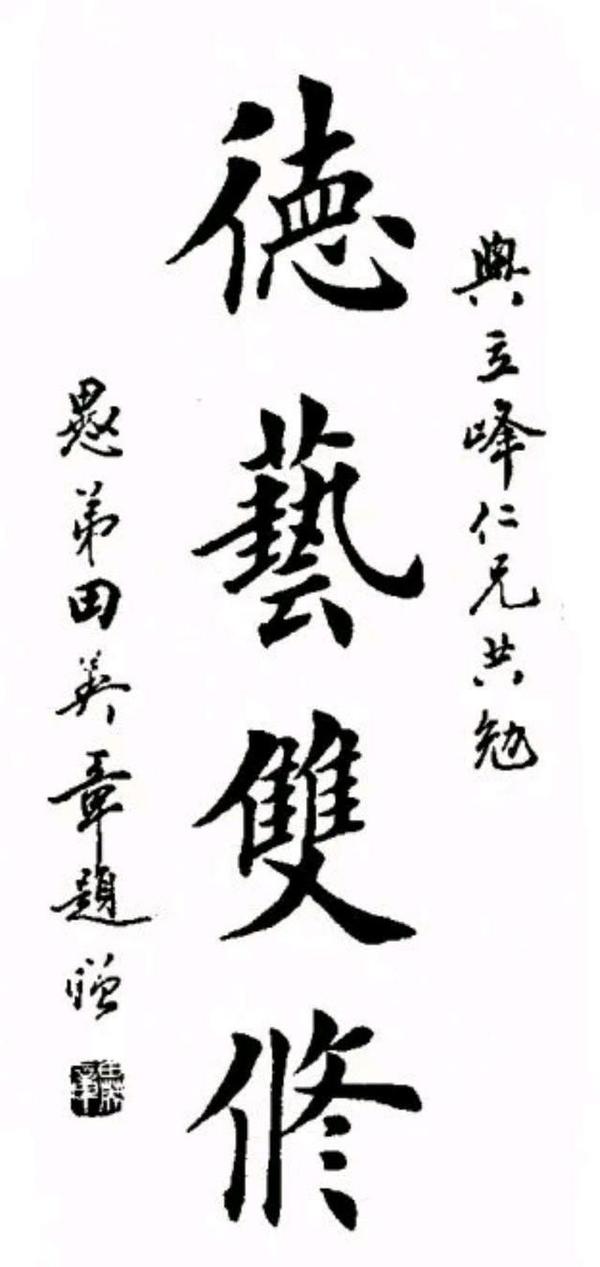 與立峰仁兄共勉
德藝雙修
愚弟田英章題贈
田英章